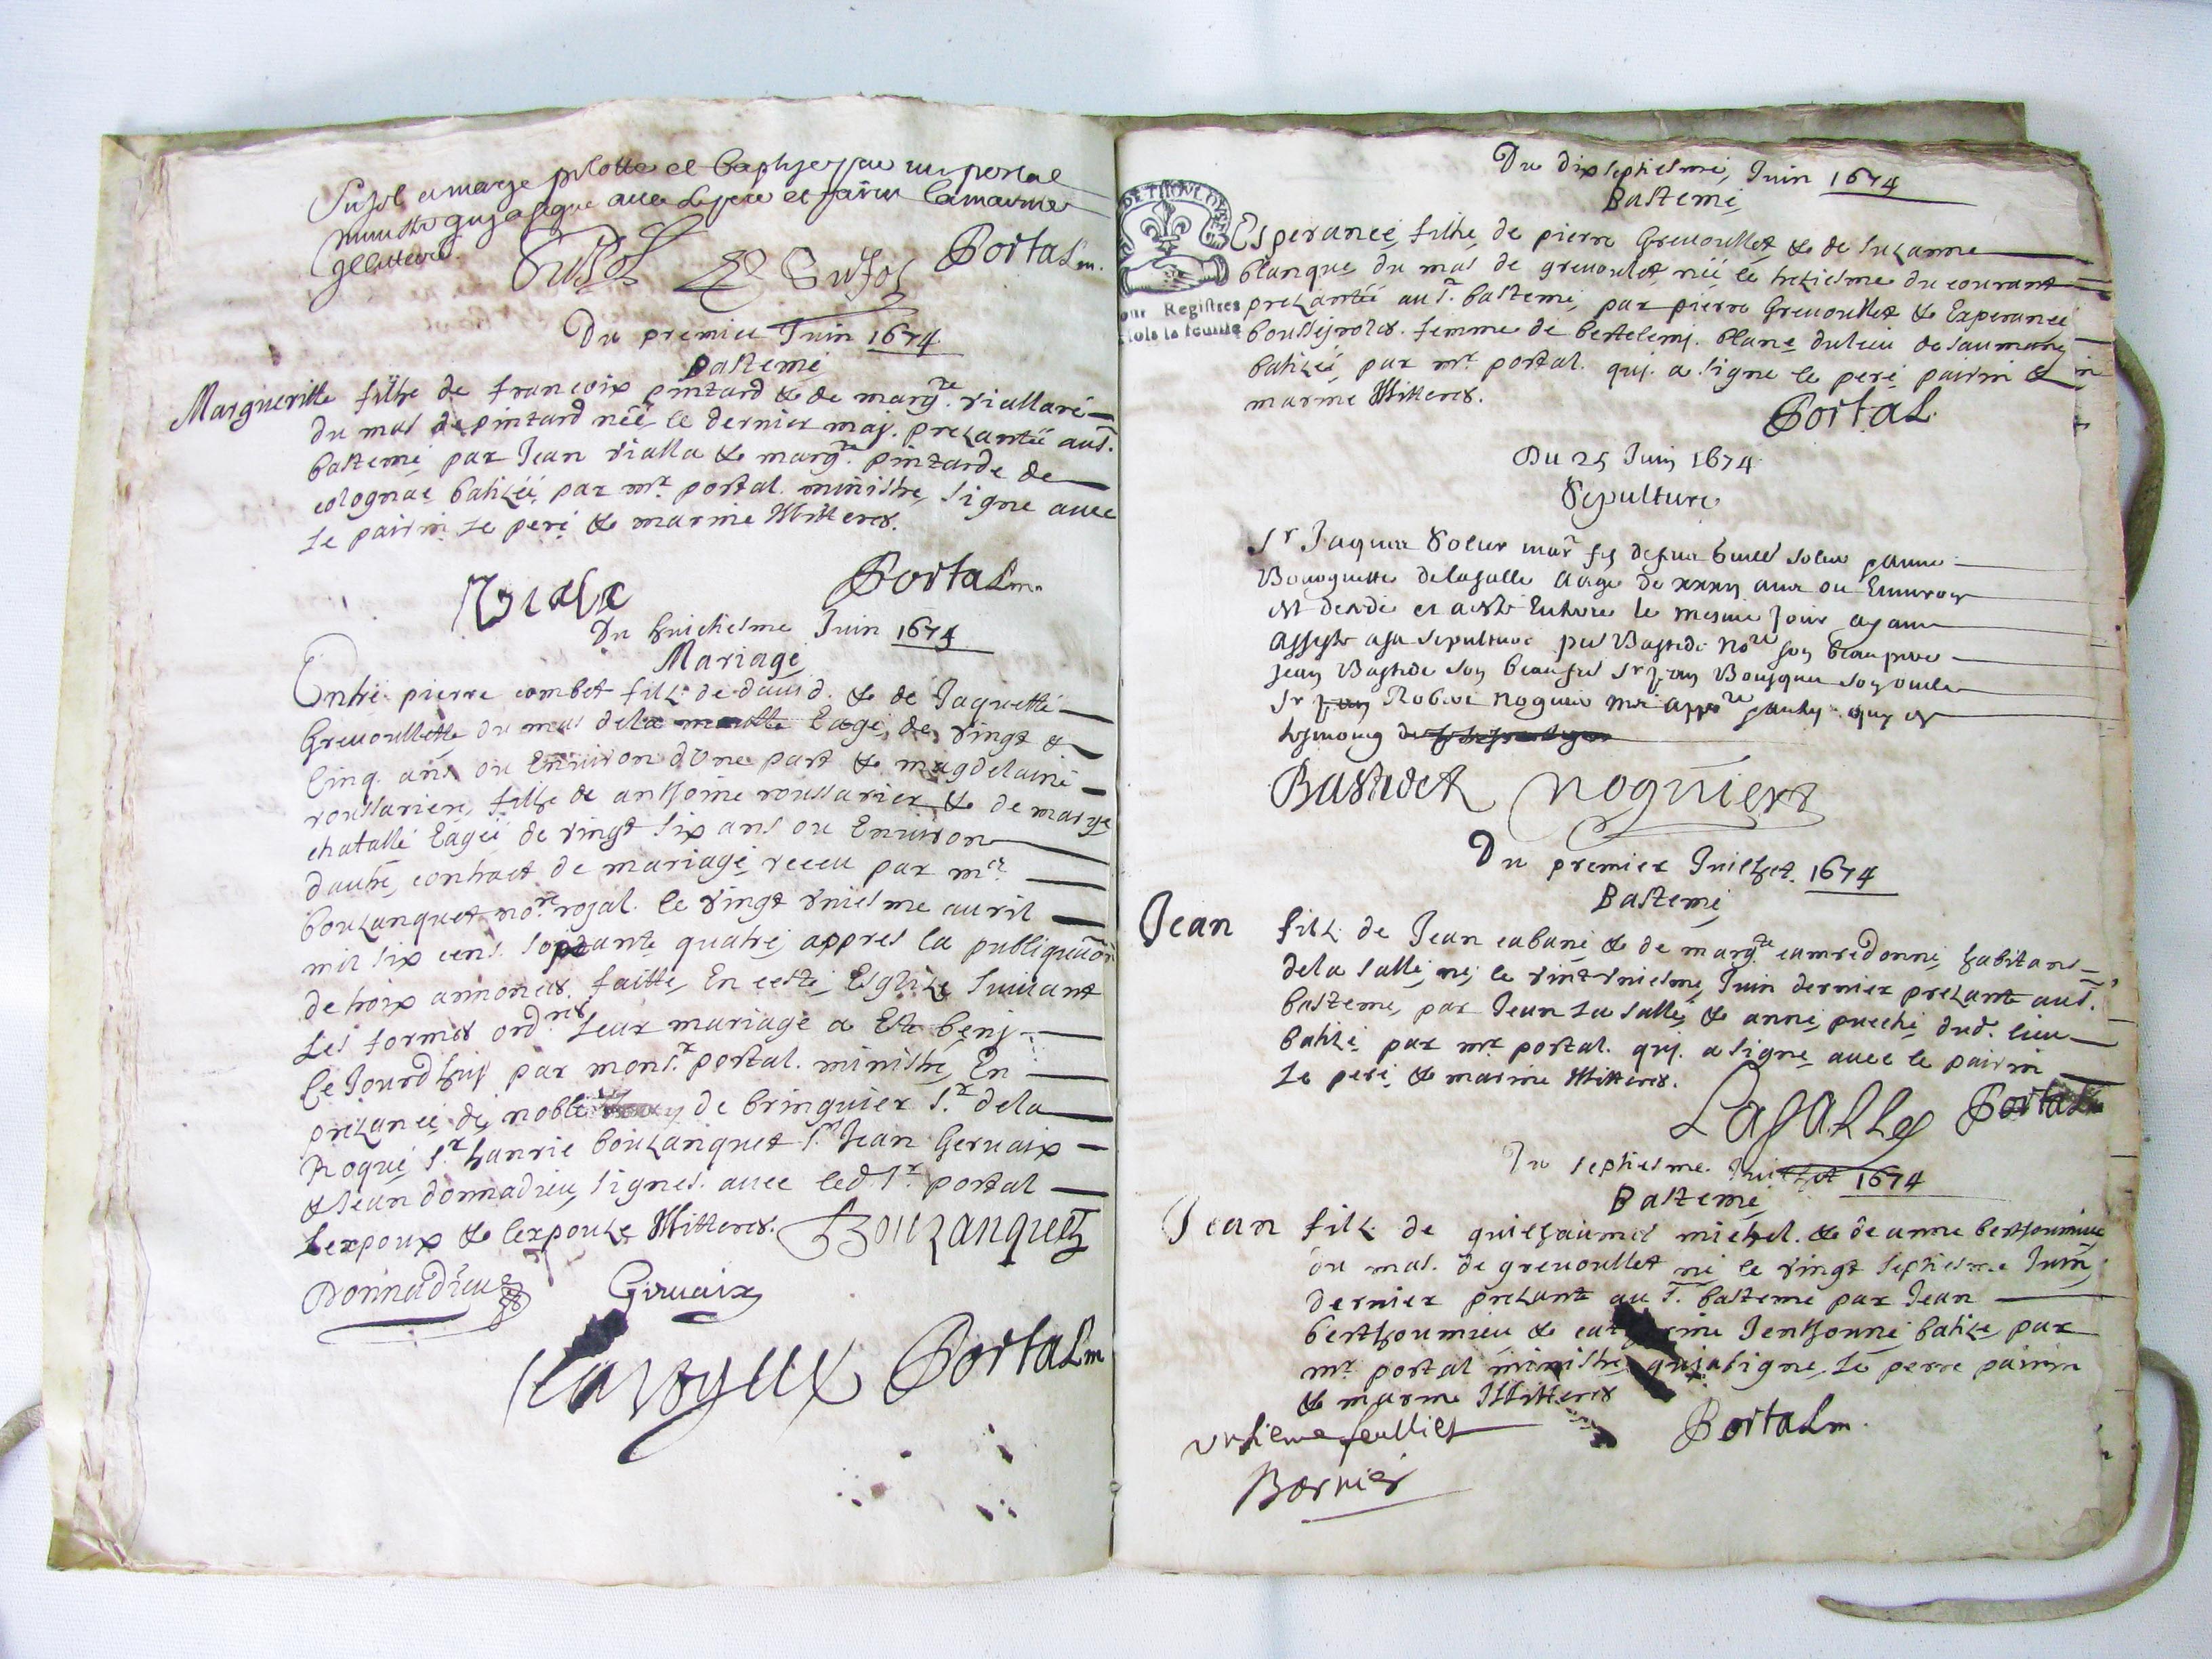 Sujol et marge pilotte et baptise par mr portal
ministre quj a signe avec le pere et pairin la marine
illittere.
Sujol Sujol Portal m.
Du premier Juin 1674
Bastemé
Margueritte filhe de francoix pintard & de margte. viallaré
du mas de pintard néé le dernier maj. prezantéé au st.
bastemé par Jean vialla & margte. pintarde de
colognac batizéé par mr. portal. ministre, signe avec
le pairin le peré & marine Illitterés.
Viala Portal m.
Du huictiesme Juin 1674
Mariagé
Entré pierre combet filz de david. & de Jaquetté
Grevoulletté du mas dela eagé de vingt &
Cinq. ans ou Environ d'une part & magdelainé
roussarieré filhe de anthoine roussarier & de marge
chatallé Eagéé de vingt six ans ou Environ
dautré, contract de mariagé receu par me.
bouzanquet nore. rojal. le vingt vniesme auril
mil six cens. soptante quatré appres la publiquaon
de troix annonces. faitte, En cesté Esglize suiuant
Les formes ordres. Leur mariage a Esté benj
Ce Jourdhuj par monsr. portal. ministré, En
prezancé dé noble de bringuier sr. dela
Roqué sr. hanric bouzanquet sr. Jean Gervaix
& Jean donnadieu, signés. avec led. sr. portal
Lexpoux & lexpouze Illitterés. Bouzanquet
Donnadieu Gervaix
Portal m
Du dixseptiesme, Juin 1674
Bastemé
DE TOVLOVSE
our Registres
sols la feuille
Esperancé filhe, de pierre Grevoullet & de suzanne
blanque, du mas de grevoulet, néé lé tretziesme du courant
prezantéé au st. bastemé, par pierre Grevoullet & Experancé
bousseyrolés. femme de bertelemj. blanc du lieu de saumane
batizéé, par mr. portal. quj. a signe le peré pairin &
marine Illitterés.
Portal.
Du 25 Juin 1674
Sepulture
Sr Jaques Soleir mar. filz de feu Soleir
Bousquette delasalle aage de xxxv ans ou Environ
est decedé et a esté Enterre le mesme Jour ayant
assisté a sa sepulture Bastide nore son beau pere
Jean Bastide son beau frere sr Jean Bousquet son oncle
Sr Noguier me appre
Bastide Noguier
Du premier Juilhet. 1674
Bastemé
Jean filz de Jean cabané & de margte camredonné, habitans
dela sallé, né, le vint vniesmé, Juin dernier prezanté au st.
bastemé, par Jean La sallé & anné puechi dud. lieu
batizé par mr. portal. quj. a signe avec le pairin
Le peré & marine Illitterés.
Lasalle Portal m
Du septiesme. Juilhet 1674
Bastemé
Jean filz de guilhaumés michel. & de anne berthoumiue
du mas. de grevoullet né le vingt septiesme Juin
dernier prezanté au st. bastemé par Jean
berthoumieu & catherine Jenthonné batizé, par
mr. portal ministre, quj a signe, Le perre pairin
& marine Illitterés
vnsiesme feulliet Portal m.
Bornier